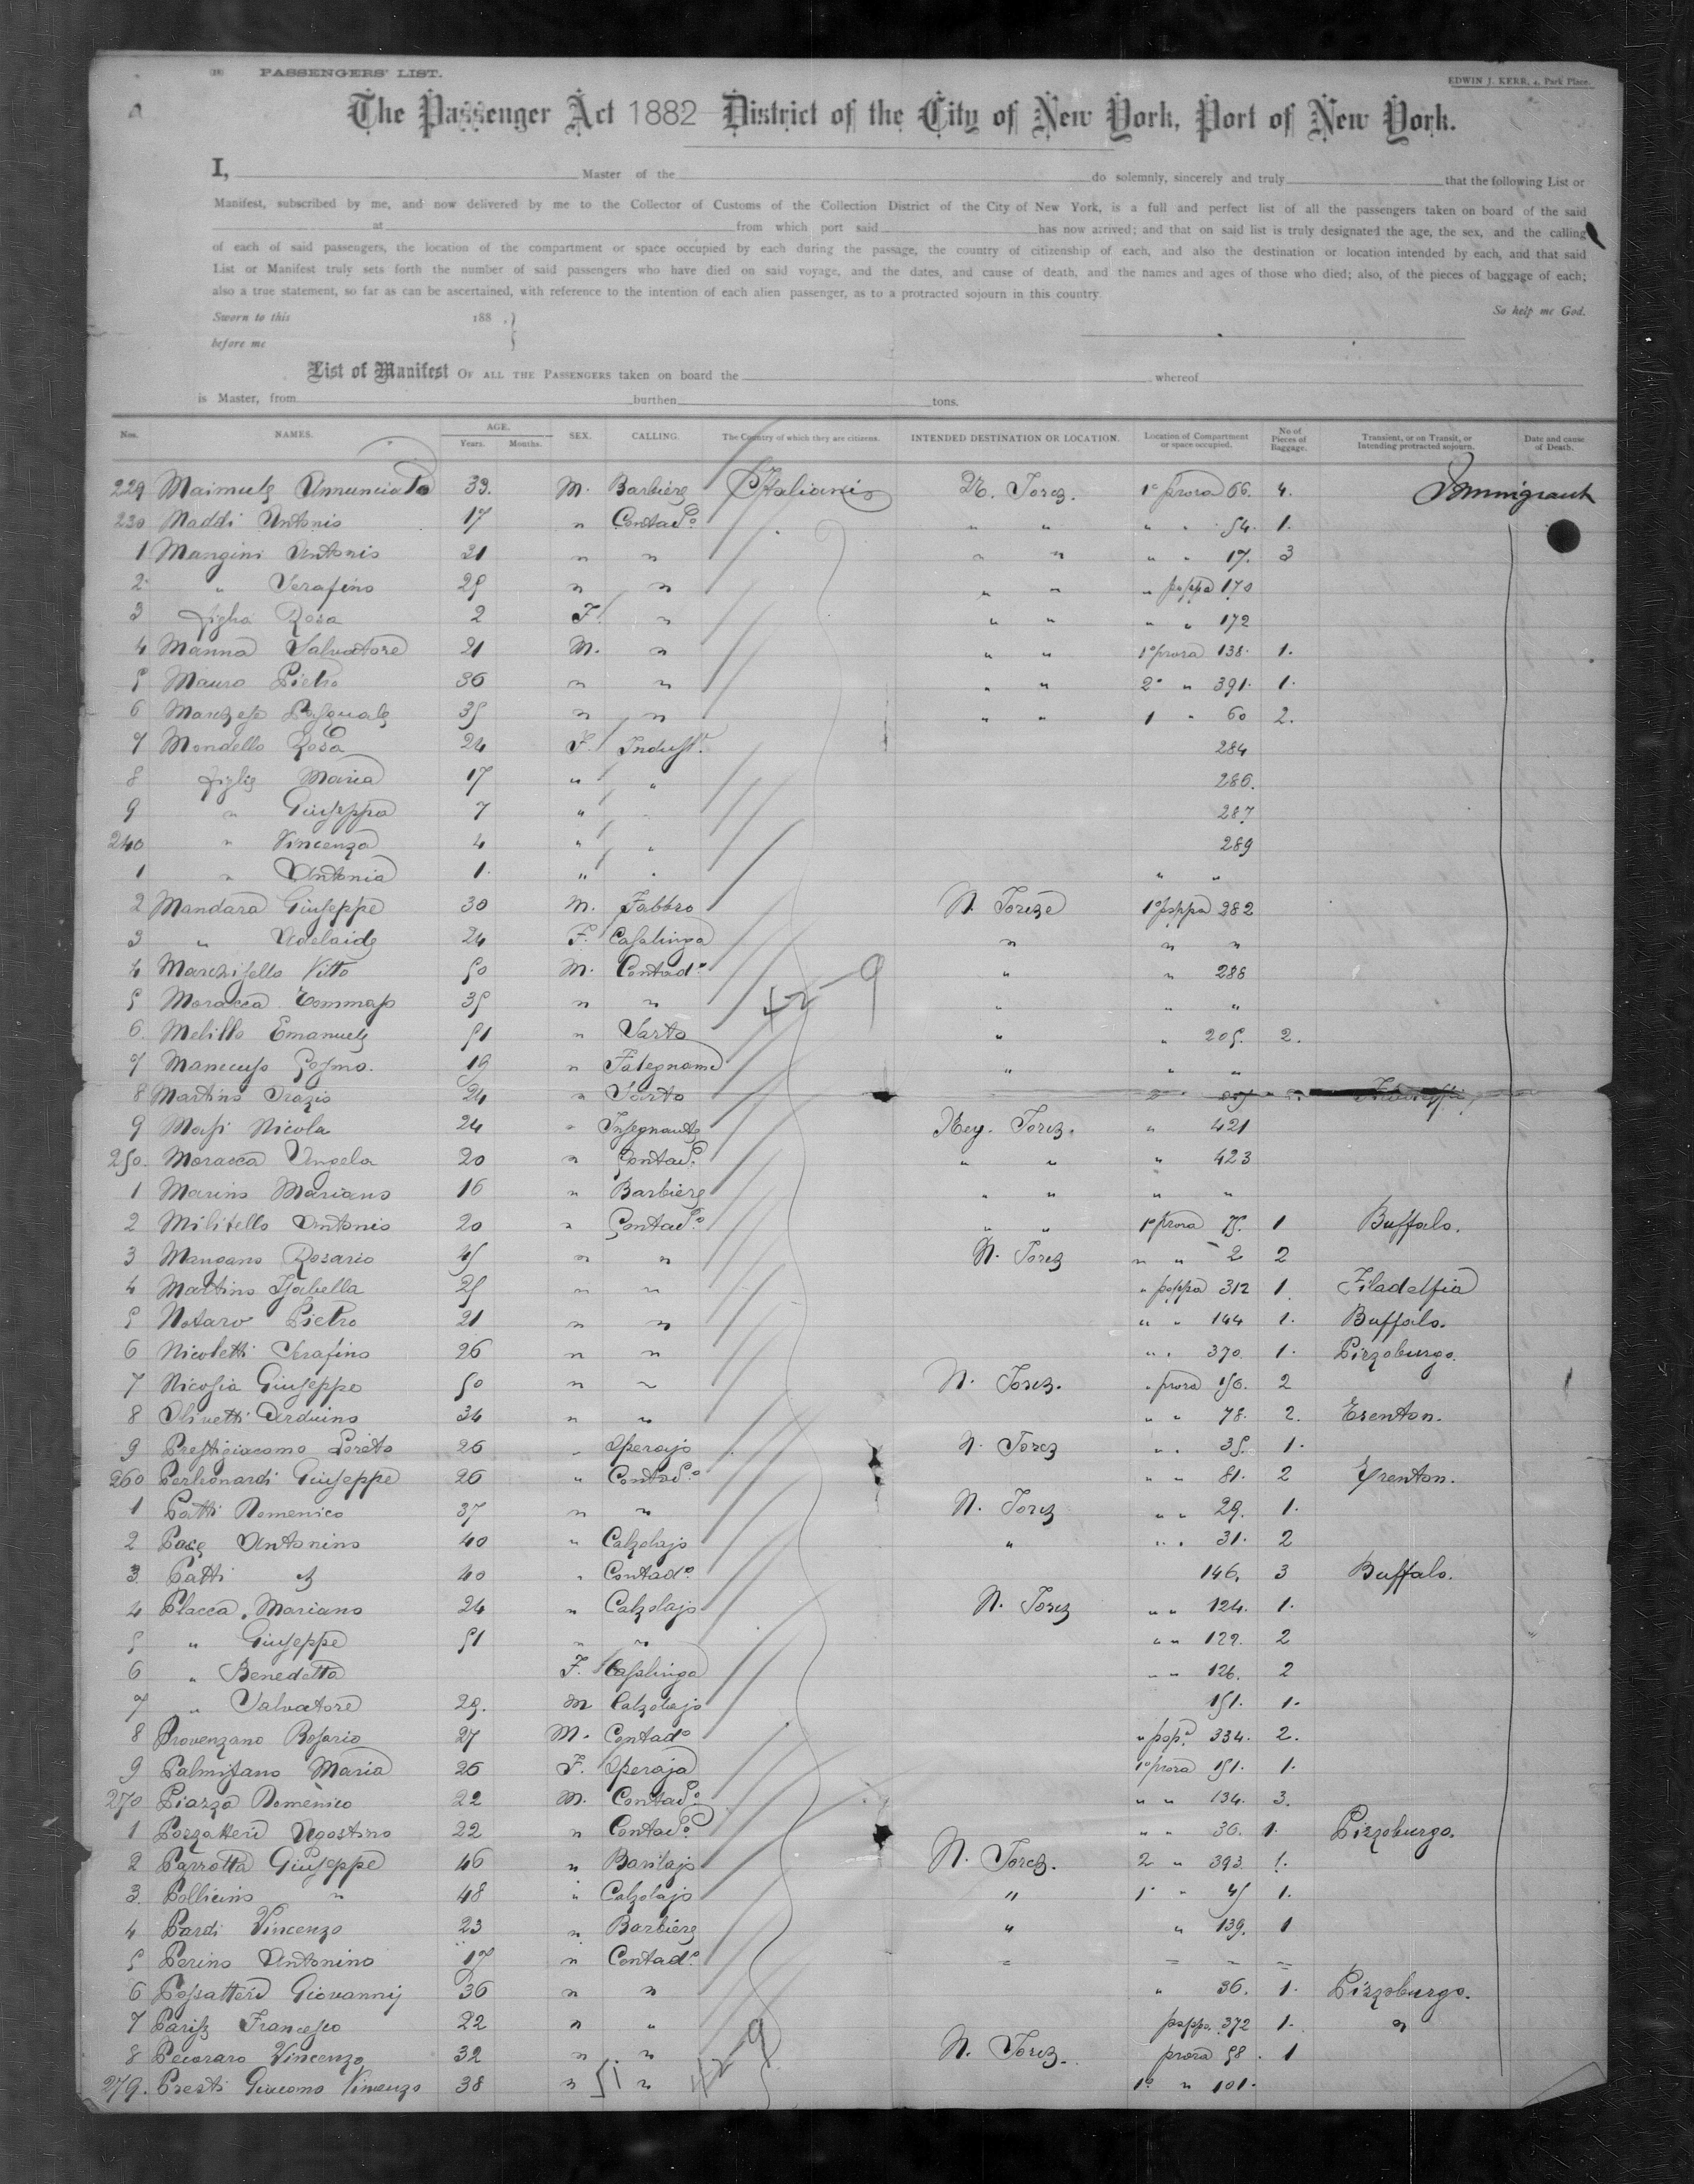 PASSENGERS' LIST.
EDWIN J. KERR, 4, Park Place.
The Passenger Act 1882 District of the City of New York, Port of New York.
I, Master of the do solemnly, sincerely and truly that the following List or
Manifest, subscribed by me, and now delivered by me to the Collector of Customs of the Collection District of the City of New York, is a full and perfect list of all the passengers taken on board of the said
at from which port said has now arrived; and that on said list is truly designated the age, the sex, and the calling
of each of said passengers, the location of the compartment or space occupied by each during the passage, the country of citizenship of each, and also the destination or location intended by each, and that said
List or Manifest truly sets forth the number of said passengers who have died on said voyage, and the dates, and cause of death, and the names and ages of those who died; also, of the pieces of baggage of each;
also a true statement, so far as can be ascertained, with reference to the intention of each alien passenger, as to a protracted sojourn in this country.
Sworn to this 188 . } So help me God.
before me
List of Manifest OF ALL THE PASSENGERS taken on board the whereof
is Master, from burthen tons.
Nos. NAMES. AGE. Years. Months. SEX. CALLING. The Country of which they are citizens. INTENDED DESTINATION OR LOCATION. Location of Compartment or space occupied. No of Pieces of Baggage. Transient, or on Transit, or Intending protracted sojourn. Date and cause of Death.
229 Annunciata 33. M. Barbiere Italiani N. Jorck. 1º prora 66. 4. Immigrant
230 Maddi Antonio 17 " Contadº " " " " 54. 1.
1 Mangini Antonio 21 " " " " " " 17. 3
2 " Serafino 25 " " " " " poppa 170
3 figlia Rosa 2 F. " " " " " 172
4 Manna Salvatore 21 M. " " " 1º prora 138. 1.
5 Mauro Pietro 36 " " " " 2º " 391. 1.
6 Marchese Pasquale 35 " " " " 1 " 60 2.
7 Mondello Rosa 24 F. Indust. 284
8 figlie Maria 17 " " 286.
9 " Giuseppa 7 " 287
240 " Vincenza 4 " " 289
1 " Antonia 1. " " " "
2 Mandara Giuseppe 30 M. Fabbro N. Jorck 1º poppa 282
3 " Adelaide 24 F. Casalinga " " "
4 Marchisello Vitto 50 M. Contadº " " 286
5 Moracca Tommaso 35 " " " " "
6. Melillo Emanuele 51 " Sarto " " 205. 2.
7 Mancuso Cosmo. 19 " Falegname " " "
8 Martino Orazio 24 " Sarto
9 Masi Nicola 24 " Insegnante Ney. Jorck. " 421
250. Moracca Angela 20 " Contadº " " " 423
1 Marino Mariano 16 " Barbiere " " " "
2 Militello Antonio 20 " Contadº " " 1º prora 75. 1 Buffalo.
3 Mangano Rosario 45 " " N. Jorck " " 2 2
4 Martino Isabella 25 " " " poppa 312 1. Filadelfia
5 Notaro Pietro 21 " " " " 144 1. Buffalo.
6 Nicoletti Serafino 26 " " " " 370. 1. Pizzoburgo.
7 Nicosia Giuseppe 50 " " N. Jorck. " prora 156. 2
8 Olivetti Arduino 34 " " " " 78. 2. Trenton.
9 Prestigiacomo Loreto 26 " Operajo N. Jorck " " 35. 1.
260 Perleonardi Giuseppe 26 " Contadº " " 81. 2 Trenton.
1 Patti Domenico 37 " " N. Jorck " " 29. 1.
2 Pace Antonino 40 " Calzolajo " " " 31. 2
3. Patti " 40 " Contadº 146. 3 Buffalo.
4 Placca Mariano 24 " Calzolajo N. Jorck " " 124. 1.
5 " Giuseppe 51 " " " " 122. 2
6 " Benedetta F. Casalinga " " 126. 2
7 " Salvatore 29. M Calzolajo 151. 1.
8 Provenzano Rosario 27 M. Contadº " popª 334. 2.
9 Palmisano Maria 26 F. Operaja 1º prora 151. 1.
270 Piazza Domenico 22 M. Contadº " " 134. 3.
1 Pozzatteri Agostino 22 " Contadº " " 36. 1. Pizzoburgo.
2 Parrotta Giuseppe 46 " Barilajo N. Jorck. 2 " 393. 1.
3. Pollicino " 48 " Calzolajo " 1º " 45 1.
4 Pardi Vincenzo 23 " Barbiere " " 139. 1
5 Perino Antonino 17 " Contadº " " " "
6 Possatteri Giovanni 36 " " " 36. 1. Pizzoburgo.
7 Parisi Francesco 22 " " poppa 372 1. "
8 Pecoraro Vincenzo 32 " " N. Jorck. prora 58. 1
279. Presti Giacomo Vincenzo 38 " 51 " 1º " 101.